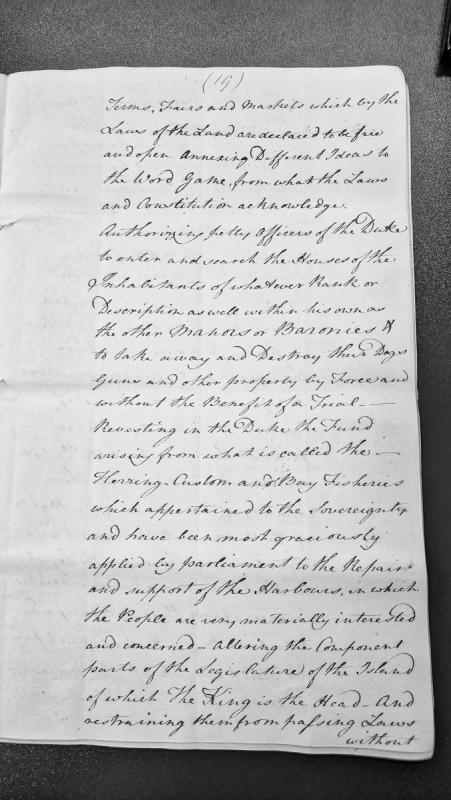 (19)
Terms, Fairs and Markets which by the
Laws of the Land are declared to be free
and open. Annexing Different Ideas to
the Word Game, from what the Laws
and Constitution acknowledge.
Authorizing petty Officers of the Duke
to enter and search the Houses of the
Inhabitants of whatever Rank or
Description as well within his own as
the other Manors or Baronies &
to take away and Destroy their Dogs
Guns and other property by Force and
without the Benefit of a Trial —
Revesting in the Duke the Fund
arising from what is called the —
Herring-Custom and Bay Fisheries
which appertained to the Sovereignty
and have been most graciously
applied by parliament to the Repair
and support of the Harbours, in which
the People are very materially interested
and concerned - altering the Component
parts of the Legislature of the Island
of which The King is the Head - And
restraining them from passing Laws
without